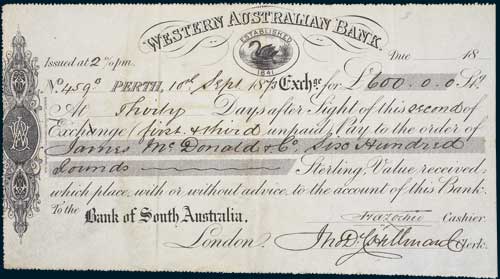 WESTERN AUSTRALIAN BANK.
ESTABLISHED
1841
Issued at 2 % pm.
Due 18
No. 4590 PERTH, 10th Sept 187 Exchge for £600.0.0 Stg
At Thirty Days after Sight of this second of
Exchange (first & third unpaid) Pay to the order of
James McDonald & Co. Six Hundred
Pounds Sterling, Value received,
which place, with or without advice, to the account of this Bank.
To the
Bank of South Australia,
London.
Cashier.
Clerk.